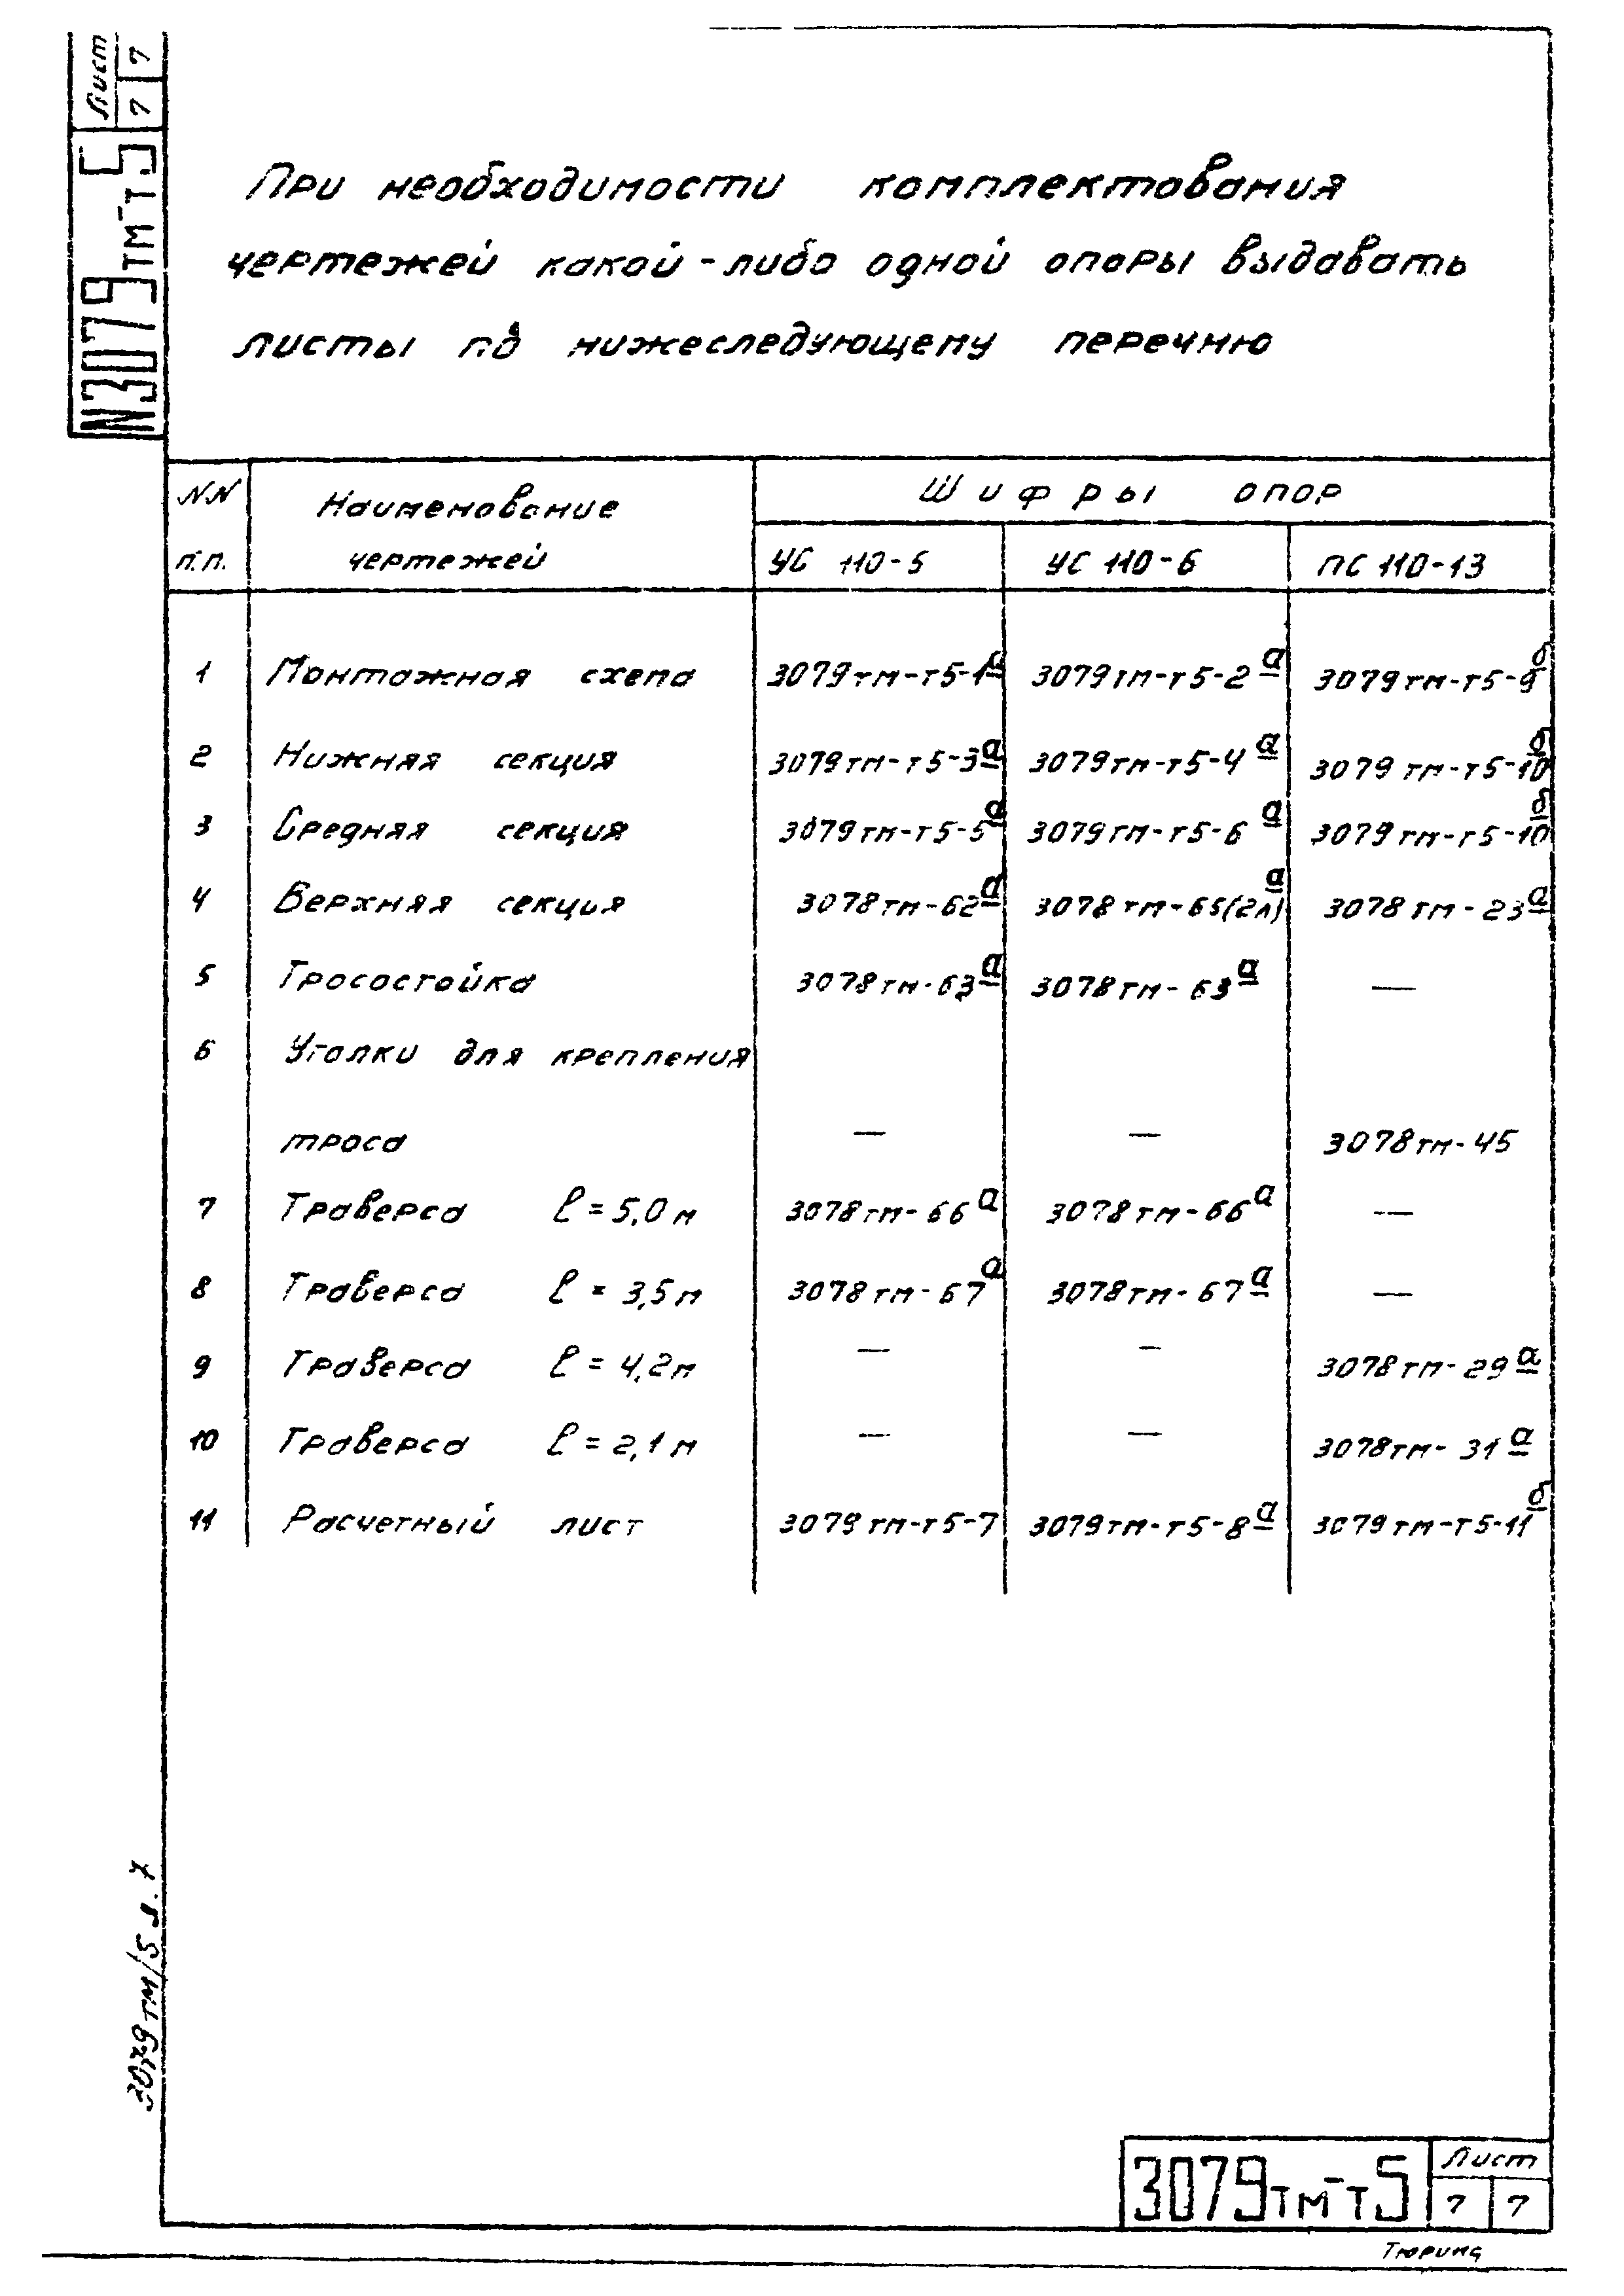 Лист
7 7
N3079тм-т5
При необходимости комплектования
чертежей какой-либо одной опоры выдавать
листы по нижеследующему перечню
NN п.п. Наименование чертежей Шифры опор
УС 110-5 УС 110-6 ПС 110-13
1 Монтажная схема 3079тм-т5-1а 3079тм-т5-2а 3079тм-т5-9б
2 Нижняя секция 3079тм-т5-3а 3079тм-т5-4а 3079тм-т5-10б
3 Средняя секция 3079тм-т5-5а 3079тм-т5-6а 3079тм-т5-10б
4 Верхняя секция 3078тм-62а 3078тм-65(2л)а 3078тм-23а
5 Тросостойка 3078тм-63а 3078тм-63а —
6 Уголки для крепления
троса — — 3078тм-45
7 Траверса ℓ=5,0м 3078тм-66а 3078тм-66а —
8 Траверса ℓ=3,5м 3078тм-67а 3078тм-67а —
9 Траверса ℓ=4,2м — — 3078тм-29а
10 Траверса ℓ=2,1м — — 3078тм-31а
11 Расчетный лист 3079тм-т5-7 3079тм-т5-8а 3079тм-т5-11б
3079тм/5 л. 7
3079тм-т5
Лист
7 7
Тюрина